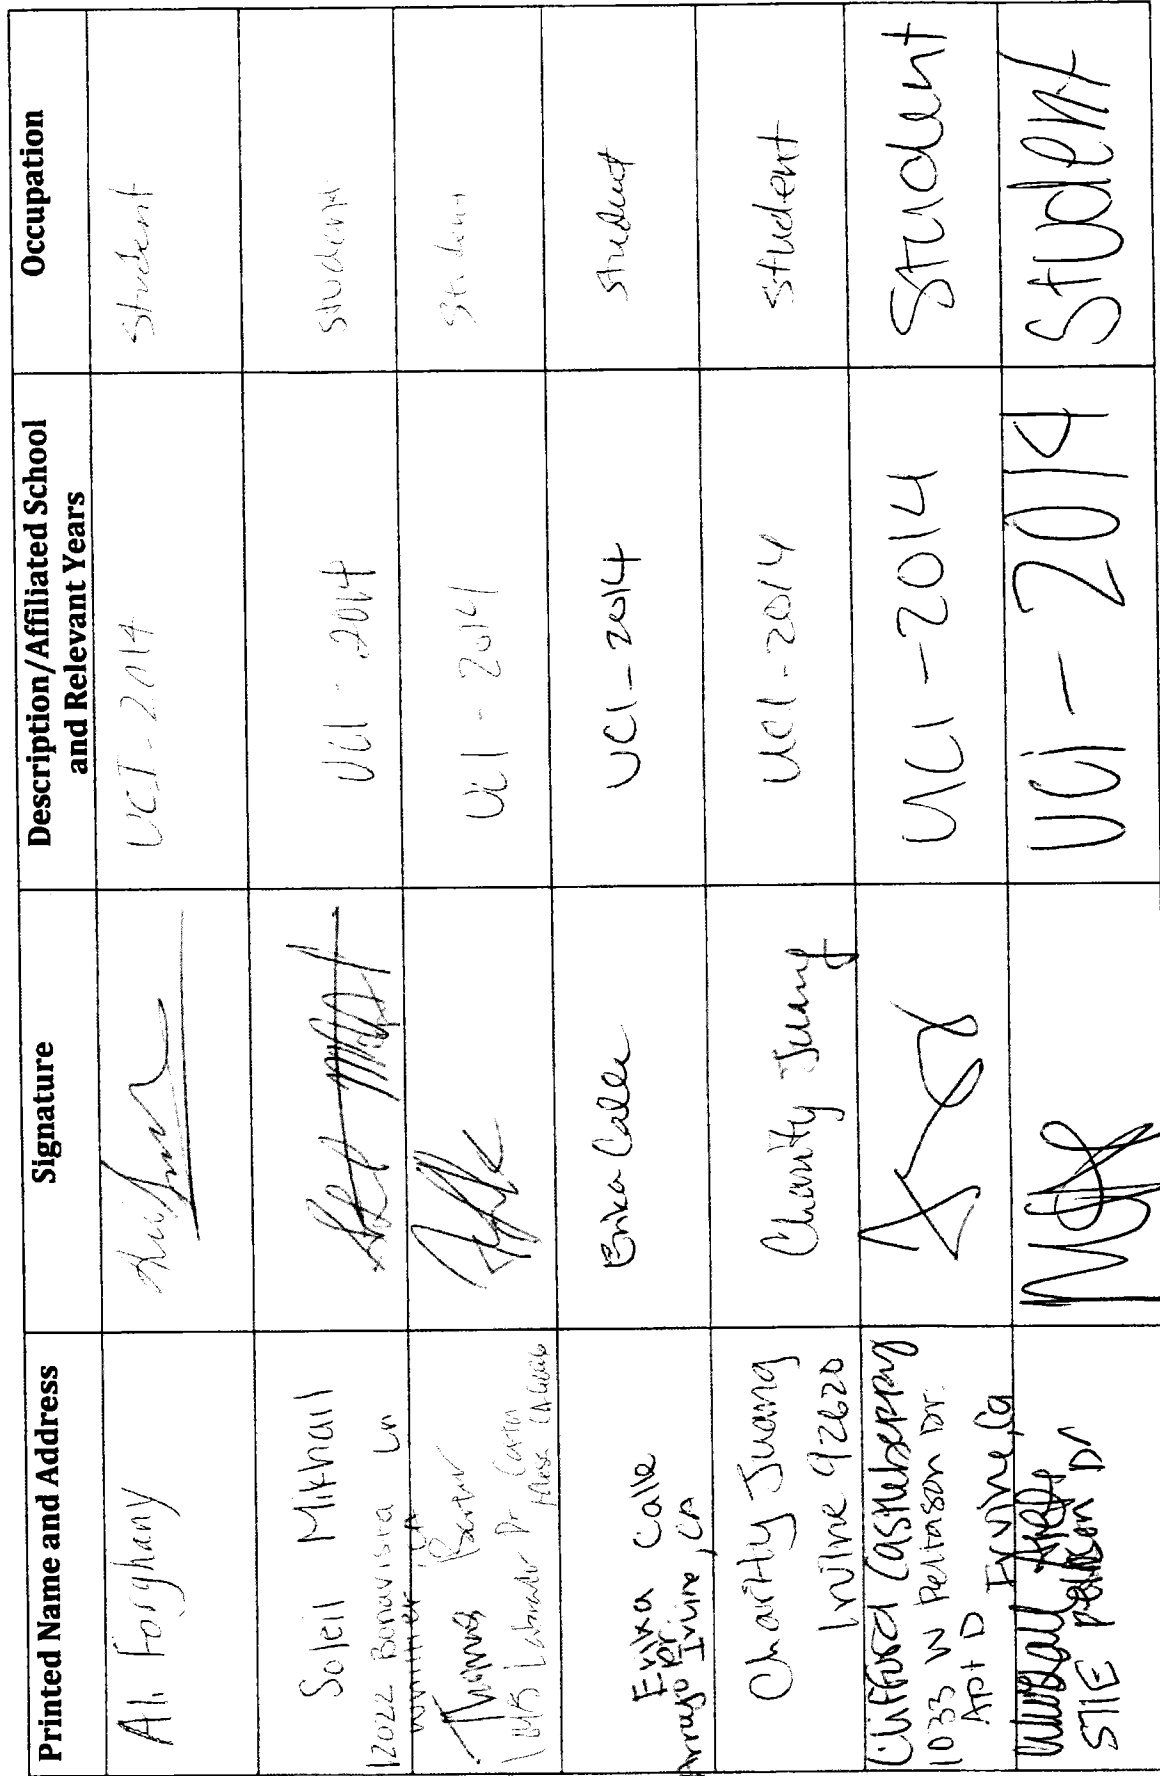 Printed Name and Address
Signature
Description/Affiliated School
and Relevant Years
Occupation
Ali Forghany
UCI - 2014
Student
Soleil Mikhail
12022 Bonavista Ln
Whittier, CA
UCI - 2014
Student
Thomas
Labrador Dr
UCI - 2014
Student
Erika Calle
Arroyo Dr
Irvine, CA
Erika Calle
UCI - 2014
student
Charity Juang
Irvine 92620
Charity Juang
UCI - 2014
student
Clifford Castleberry
1033 W Peltason Dr.
Apt D Irvine, Ca
UCI - 2014
Student
Peltason Dr
UCi - 2014
Student